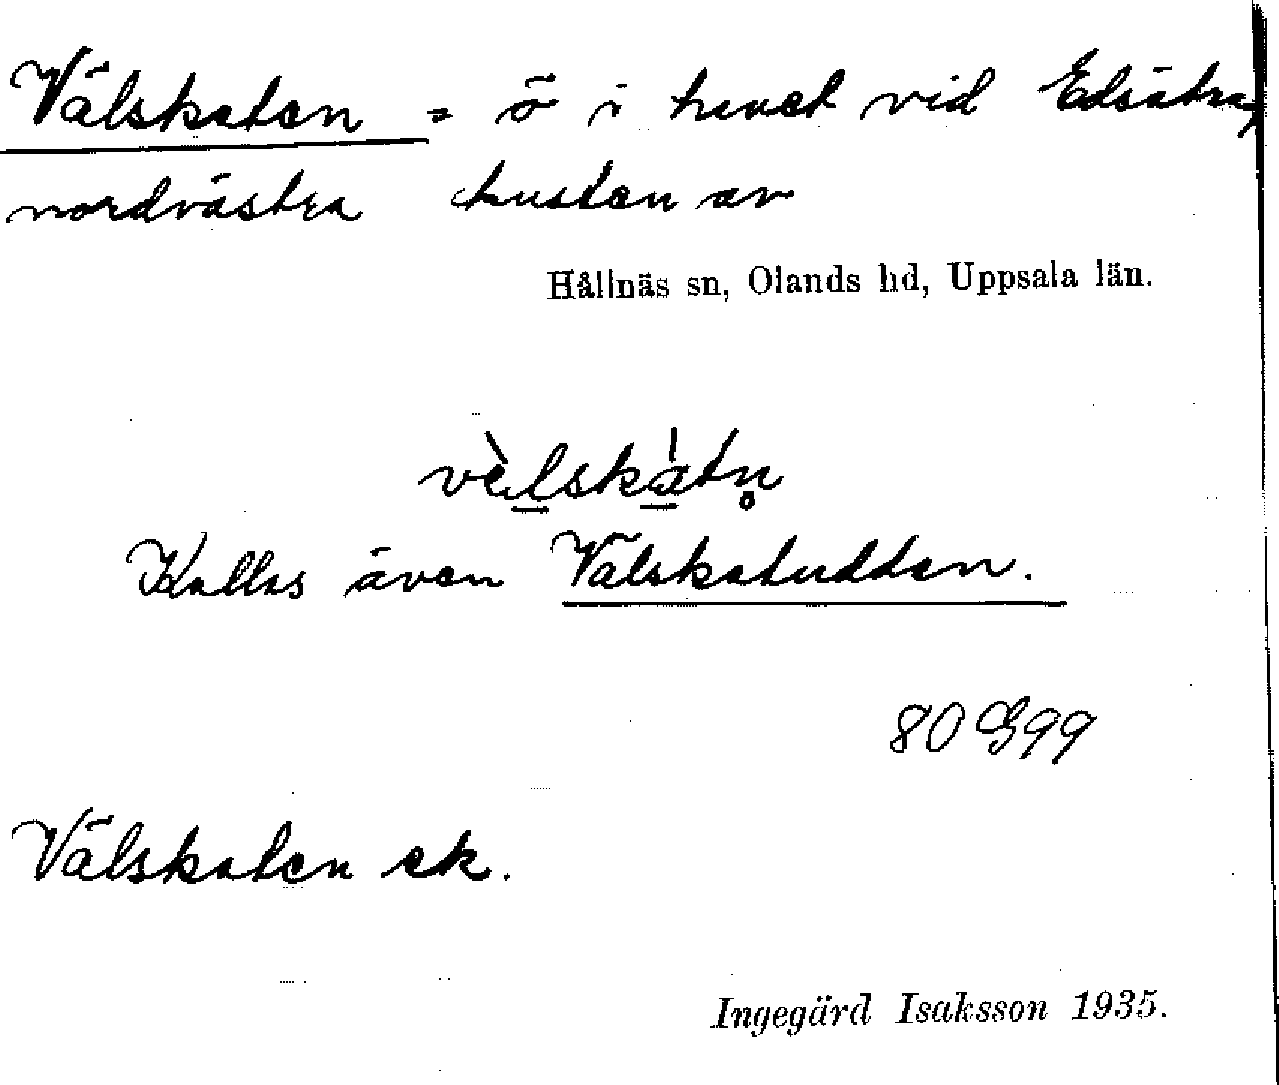 Välskaten = ö i havet vid Edsätra,
nordvästra kusten av
Hållnäs sn, Olands hd, Uppsala län.
vèlskàtn̥
Kallas även Välskatudden.
80 G99
Välskaten ek.
Ingegärd Isaksson 1935.